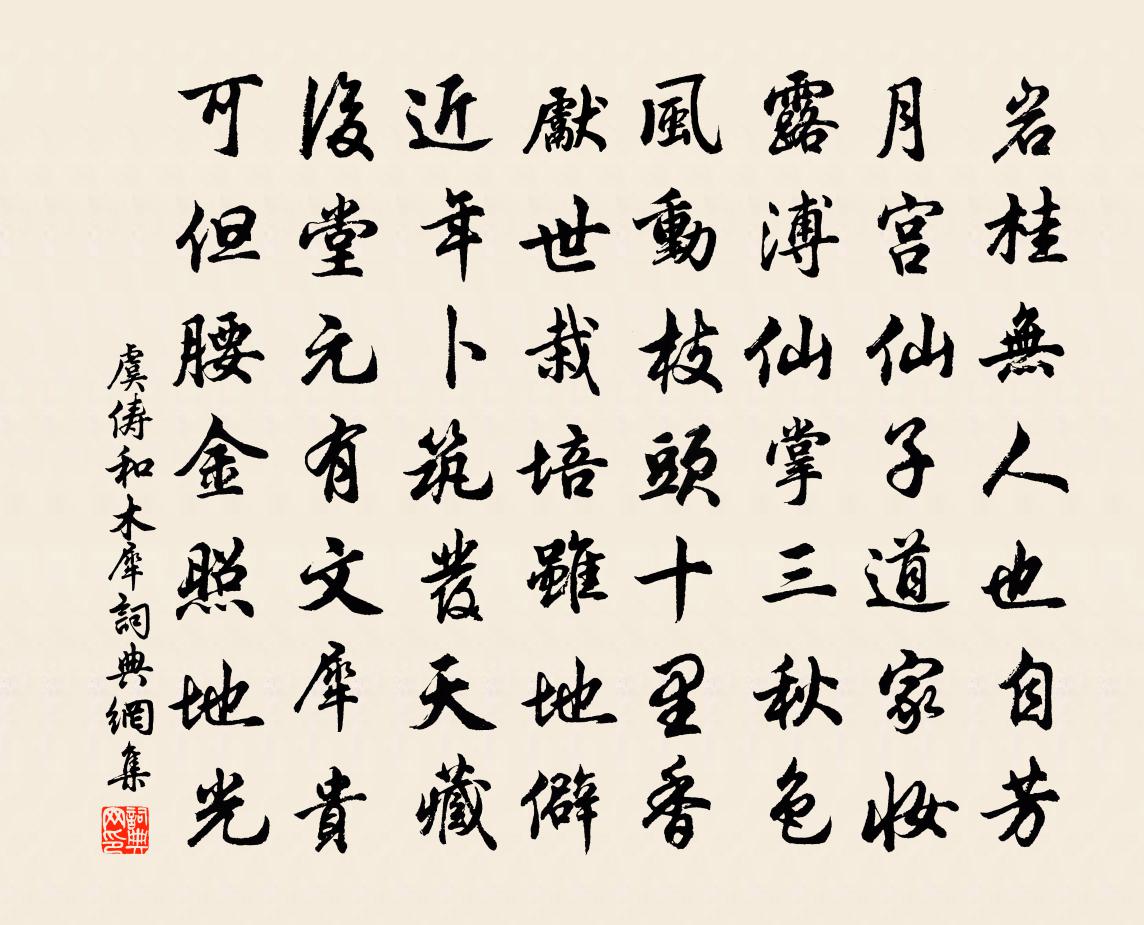 岩桂無人也自芳
月宫仙子道家妝
露溥仙掌三秋色
風動枝頭十里香
獻世栽培雖地僻
近年卜筑發天藏
後堂元有文犀貴
可但腰金照地光
虞儔和木犀詞典網集
詞典網印